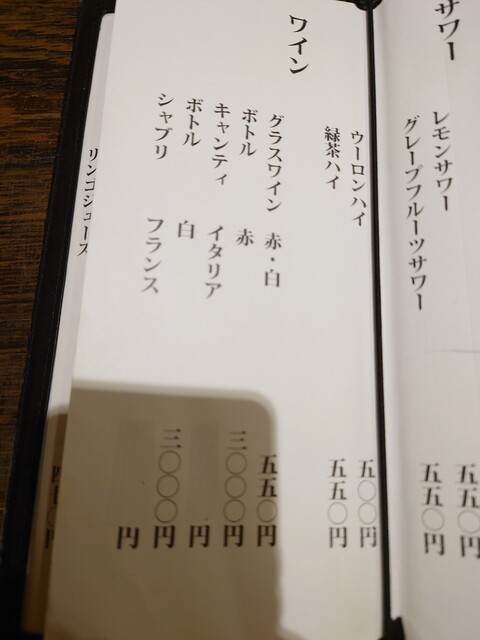 サワー
レモンサワー 五五〇円
グレープフルーツサワー 五五〇円
ウーロンハイ 五〇〇円
緑茶ハイ 五五〇円
ワイン
グラスワイン 赤・白 五五〇円
ボトル 赤
キャンティ イタリア 三〇〇〇円
ボトル 白 円
シャブリ フランス 三〇〇〇円
円
リンゴジュース